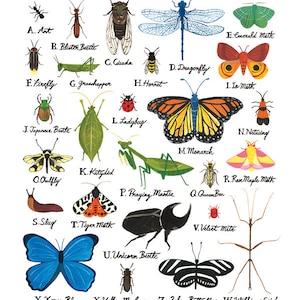 A. Ant
B. Blister Beetle
C. Cicada
D. Dragonfly
E. Emerald Moth
F. Firefly
G. Grasshopper
H. Hornet
I. Io Moth
J. Japanese Beetle
K. Katydid
L. Ladybug
M. Monarch
N. Netwing
O. Owlfly
P. Praying Mantis
Q. Queen Bee
R. Rosy Maple Moth
S. Slug
T. Tiger Moth
U. Unicorn Beetle
V. Velvet Mite